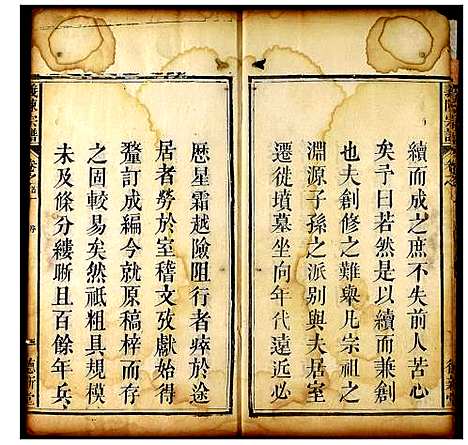 續而成之庶不失前人苦心
矣予曰若然是以續而兼創
也夫創修之難舉凡宗祖之
淵源子孫之派別與夫居室
遷徙墳墓坐向年代遠近必
歷星霜越險阻行者瘁於途
居者勞於室稽文攷獻始得
釐訂成編今就原稿梓而存
之固較易矣然祇粗具規模
未及條分縷晰且百餘年兵
義陳宗譜
卷之
序